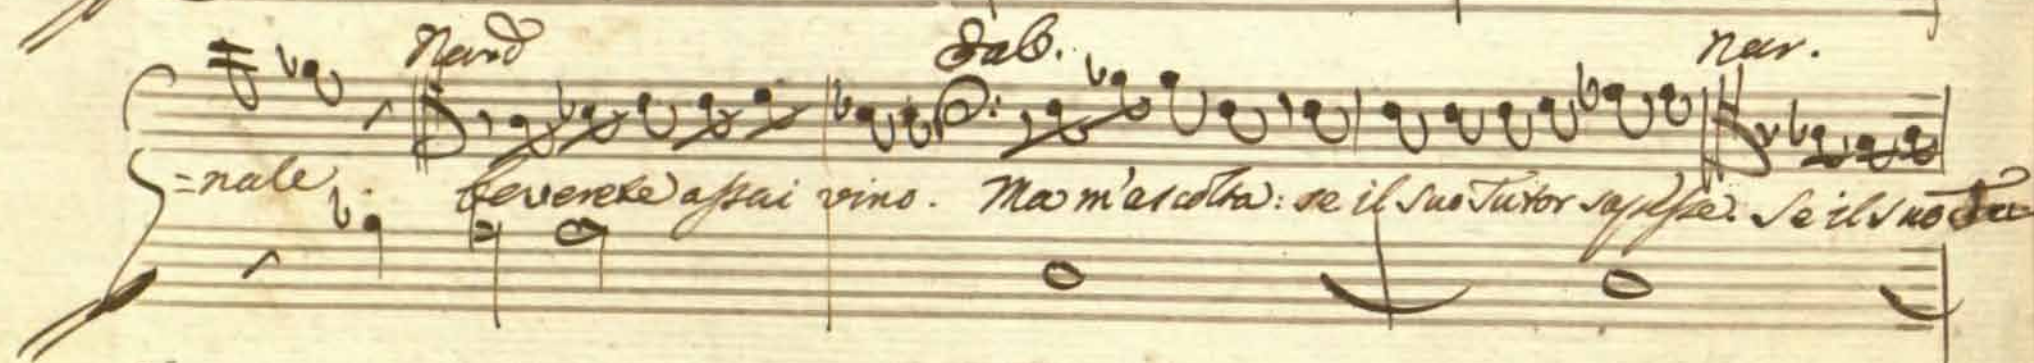 Nard Sab. nar.
=nale. beverete assai vino. Ma m'ascolta: se il suo Tutor sapesse. Se il suo Tu